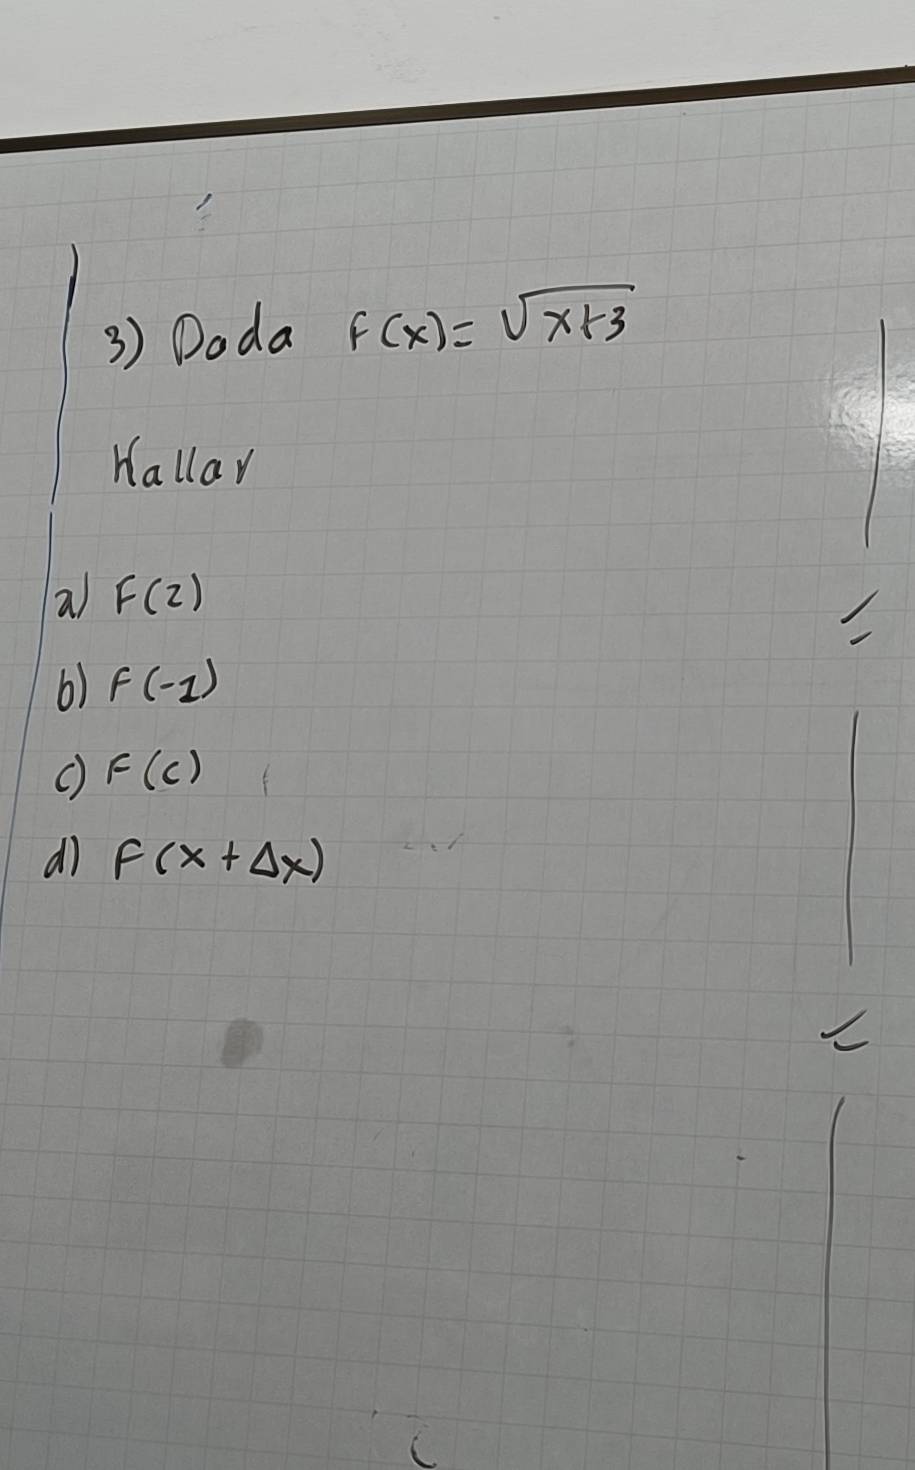 3) Dada F(x)= √x+3
Hallar
a) F(2)
b) F(-1)
c) F(c)
d) F(x + Δx)